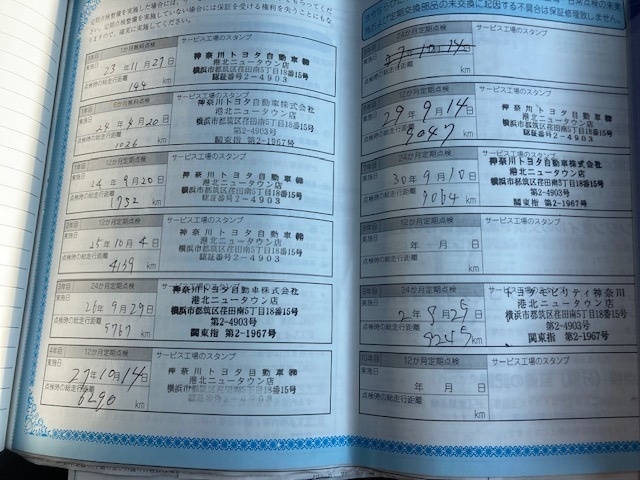 定期点検整備を実施した場合には、
い。定期点検整備を実施していない場合には保証を受ける権利を失うことにもな
りますので、確実に実施してください。
1か月無料点検
サービス工場のスタンプ
実施日
23年11月27日
点検時の総走行距離
144 km
神奈川トヨタ自動車㈱
港北ニュータウン店
横浜市都筑区荏田南5丁目18番15号
認証番号2-4903
6か月無料点検
サービス工場のスタンプ
実施日
24年4月20日
点検時の総走行距離
1026 km
神奈川トヨタ自動車株式会社
港北ニュータウン店
横浜市都筑区荏田南5丁目18番15号
第2-4903号
関東指 第2-1967号
12か月定期点検
サービス工場のスタンプ
実施日
24年9月20日
点検時の総走行距離
1732 km
神奈川トヨタ自動車㈱
港北ニュータウン店
横浜市都筑区荏田南5丁目18番15号
認証番号2-4903
2年目
12か月定期点検
サービス工場のスタンプ
実施日
25年10月4日
点検時の総走行距離
4159 km
神奈川トヨタ自動車㈱
港北ニュータウン店
横浜市都筑区荏田南5丁目18番15号
認証番号2-4903
3年目
24か月定期点検
サービス
実施日
26年9月29日
点検時の総走行距離
5767 km
神奈川トヨタ自動車株式会社
港北ニュータウン店
横浜市都筑区荏田南5丁目18番15号
第2-4903号
関東指 第2-1967号
4年目
12か月定期点検
サービス工場のスタンプ
実施日
27年10月14日
点検時の総走行距離
6290 km
神奈川トヨタ自動車㈱
港北ニュータウン店
横浜市都筑区荏田南5丁目18番15号
認証番号2-4903
および定期交換部品の未交換に起因する不具合は保証修理致しません。
24か月定期点検
サービス工場のスタンプ
実施日
27年10月14日
点検時の総走行距離
km
12か月定期点検
サービス工場のスタンプ
実施日
29年9月14日
点検時の総走行距離
km
神奈川トヨタ自動車㈱
港北ニュータウン店
横浜市都筑区荏田南5丁目18番15号
認証番号2-4903
24か月定期点検
サービス工場のスタンプ
実施日
30年9月10日
点検時の総走行距離
9064 km
神奈川トヨタ自動車株式会社
港北ニュータウン店
横浜市都筑区荏田南5丁目18番15号
第2-4903号
関東指 第2-1967号
12か月定期点検
サービス工場のスタンプ
実施日
年 月 日
点検時の総走行距離
km
24か月定期点検
サービス
実施日
2年8月27日
点検時の総走行距離
km
トヨタモビリティ神奈川
港北ニュータウン店
横浜市都筑区荏田南5丁目18番15号
第2-4903号
関東指 第2-1967号
10年目
12か月定期点検
サービス工場のスタンプ
実施日
年 月 日
点検時の総走行距離
km